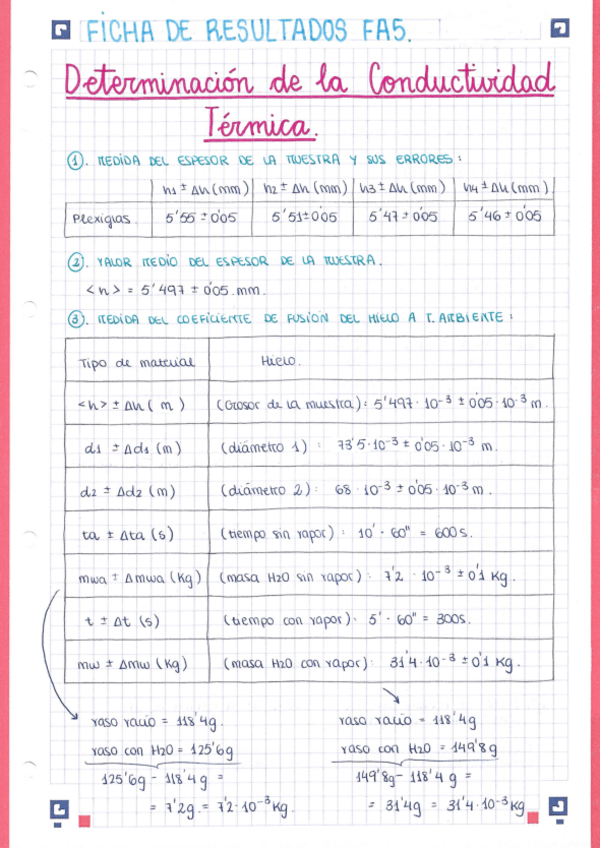 FICHA DE RESULTADOS FA5.
Determinación de la Conductividad
Térmica.
①. MEDIDA DEL ESPESOR DE LA MUESTRA Y SUS ERRORES:
h1 ± Δh (mm) h2 ± Δh (mm) h3 ± Δh (mm) h4 ± Δh (mm)
Plexiglas. 5'55 ± 0'05 5'51 ± 0'05 5'47 ± 0'05 5'46 ± 0'05
②. VALOR MEDIO DEL ESPESOR DE LA MUESTRA.
<h> = 5'497 ± 0'05 mm.
③. MEDIDA DEL COEFICIENTE DE FUSIÓN DEL HIELO A T. AMBIENTE:
Tipo de material Hielo.
<h> ± Δh (m) (Grosor de la muestra): 5'497·10⁻³ ± 0'05·10⁻³ m.
d1 ± Δd1 (m) (diámetro 1): 73'5·10⁻³ ± 0'05·10⁻³ m.
d2 ± Δd2 (m) (diámetro 2): 68·10⁻³ ± 0'05·10⁻³ m.
ta ± Δta (s) (tiempo sin vapor): 10' · 60" = 600s.
mwa ± Δmwa (Kg) (masa H2O sin vapor): 7'2 · 10⁻³ ± 0'1 Kg.
t ± Δt (s) (tiempo con vapor): 5' · 60" = 300s.
mw ± Δmw (Kg) (masa H2O con vapor): 31'4·10⁻³ ± 0'1 Kg.
vaso vacío = 118'4g.
vaso con H2O = 125'6g
125'6g - 118'4g =
= 7'2g. = 7'2·10⁻³ Kg.
vaso vacío = 118'4g
vaso con H2O = 149'8g
149'8g - 118'4g =
= 31'4g = 31'4·10⁻³ Kg